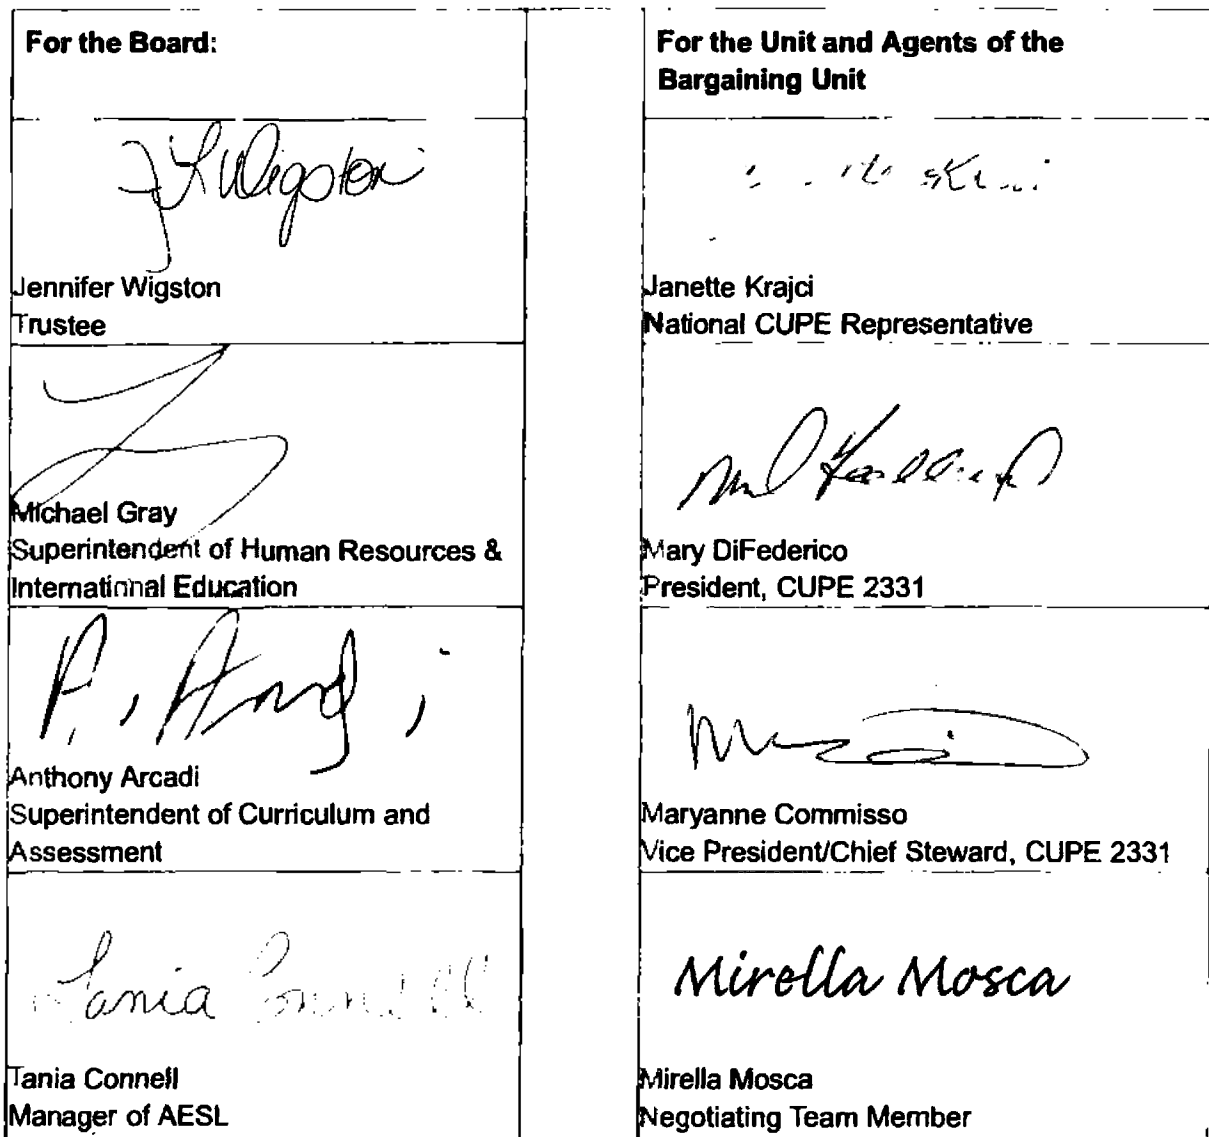 For the Board:
JLWigston
Jennifer Wigston
Trustee
Michael Gray
Superintendent of Human Resources &
International Education
Anthony Arcadi
Superintendent of Curriculum and
Assessment
Tania Connell
Tania Connell
Manager of AESL
For the Unit and Agents of the
Bargaining Unit
Janette Krajci
National CUPE Representative
Mary DiFederico
President, CUPE 2331
Maryanne Commisso
Vice President/Chief Steward, CUPE 2331
Mirella Mosca
Mirella Mosca
Negotiating Team Member